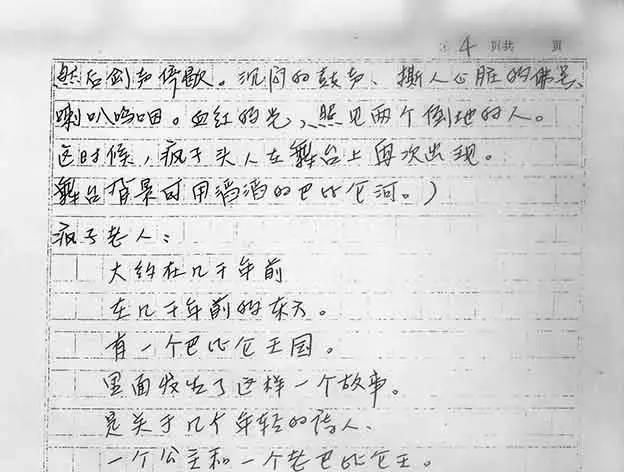 第 4 页共 页
然后剑声停歇。沉闷的鼓声、撕人心脏的佛号、
喇叭呜咽。血红的光，照见两个倒地的人。
这时候，疯子头人在舞台上再次出现。
舞台背景可用滔滔的巴比仑河。）
疯子老人：
大约在几千年前
在几千年前的东方。
有一个巴比仑王国。
里面发生了这样一个故事。
是关于几个年轻的诗人、
一个公主和一个老巴比仑王。